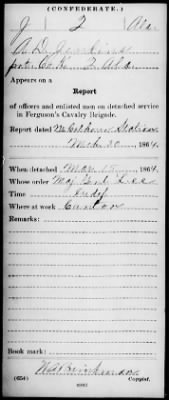 (CONFEDERATE.)
J 2 Ala.
A. D. Jenkins
Co. K. 2 Ala.
Appears on a
Report
of officers and enlisted men on detached service
in Ferguson's Cavalry Brigade.
Report dated McCalhoun Station
Mch 30, 1864.
When detached Mar 15, 1864.
Whose order Maj Genl Lee
Time Indef
Where at work Canton
Remarks:
Book mark:
(654) Copyist.